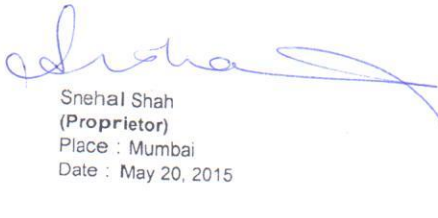 Snehal Shah
(Proprietor)
Place : Mumbai
Date : May 20, 2015